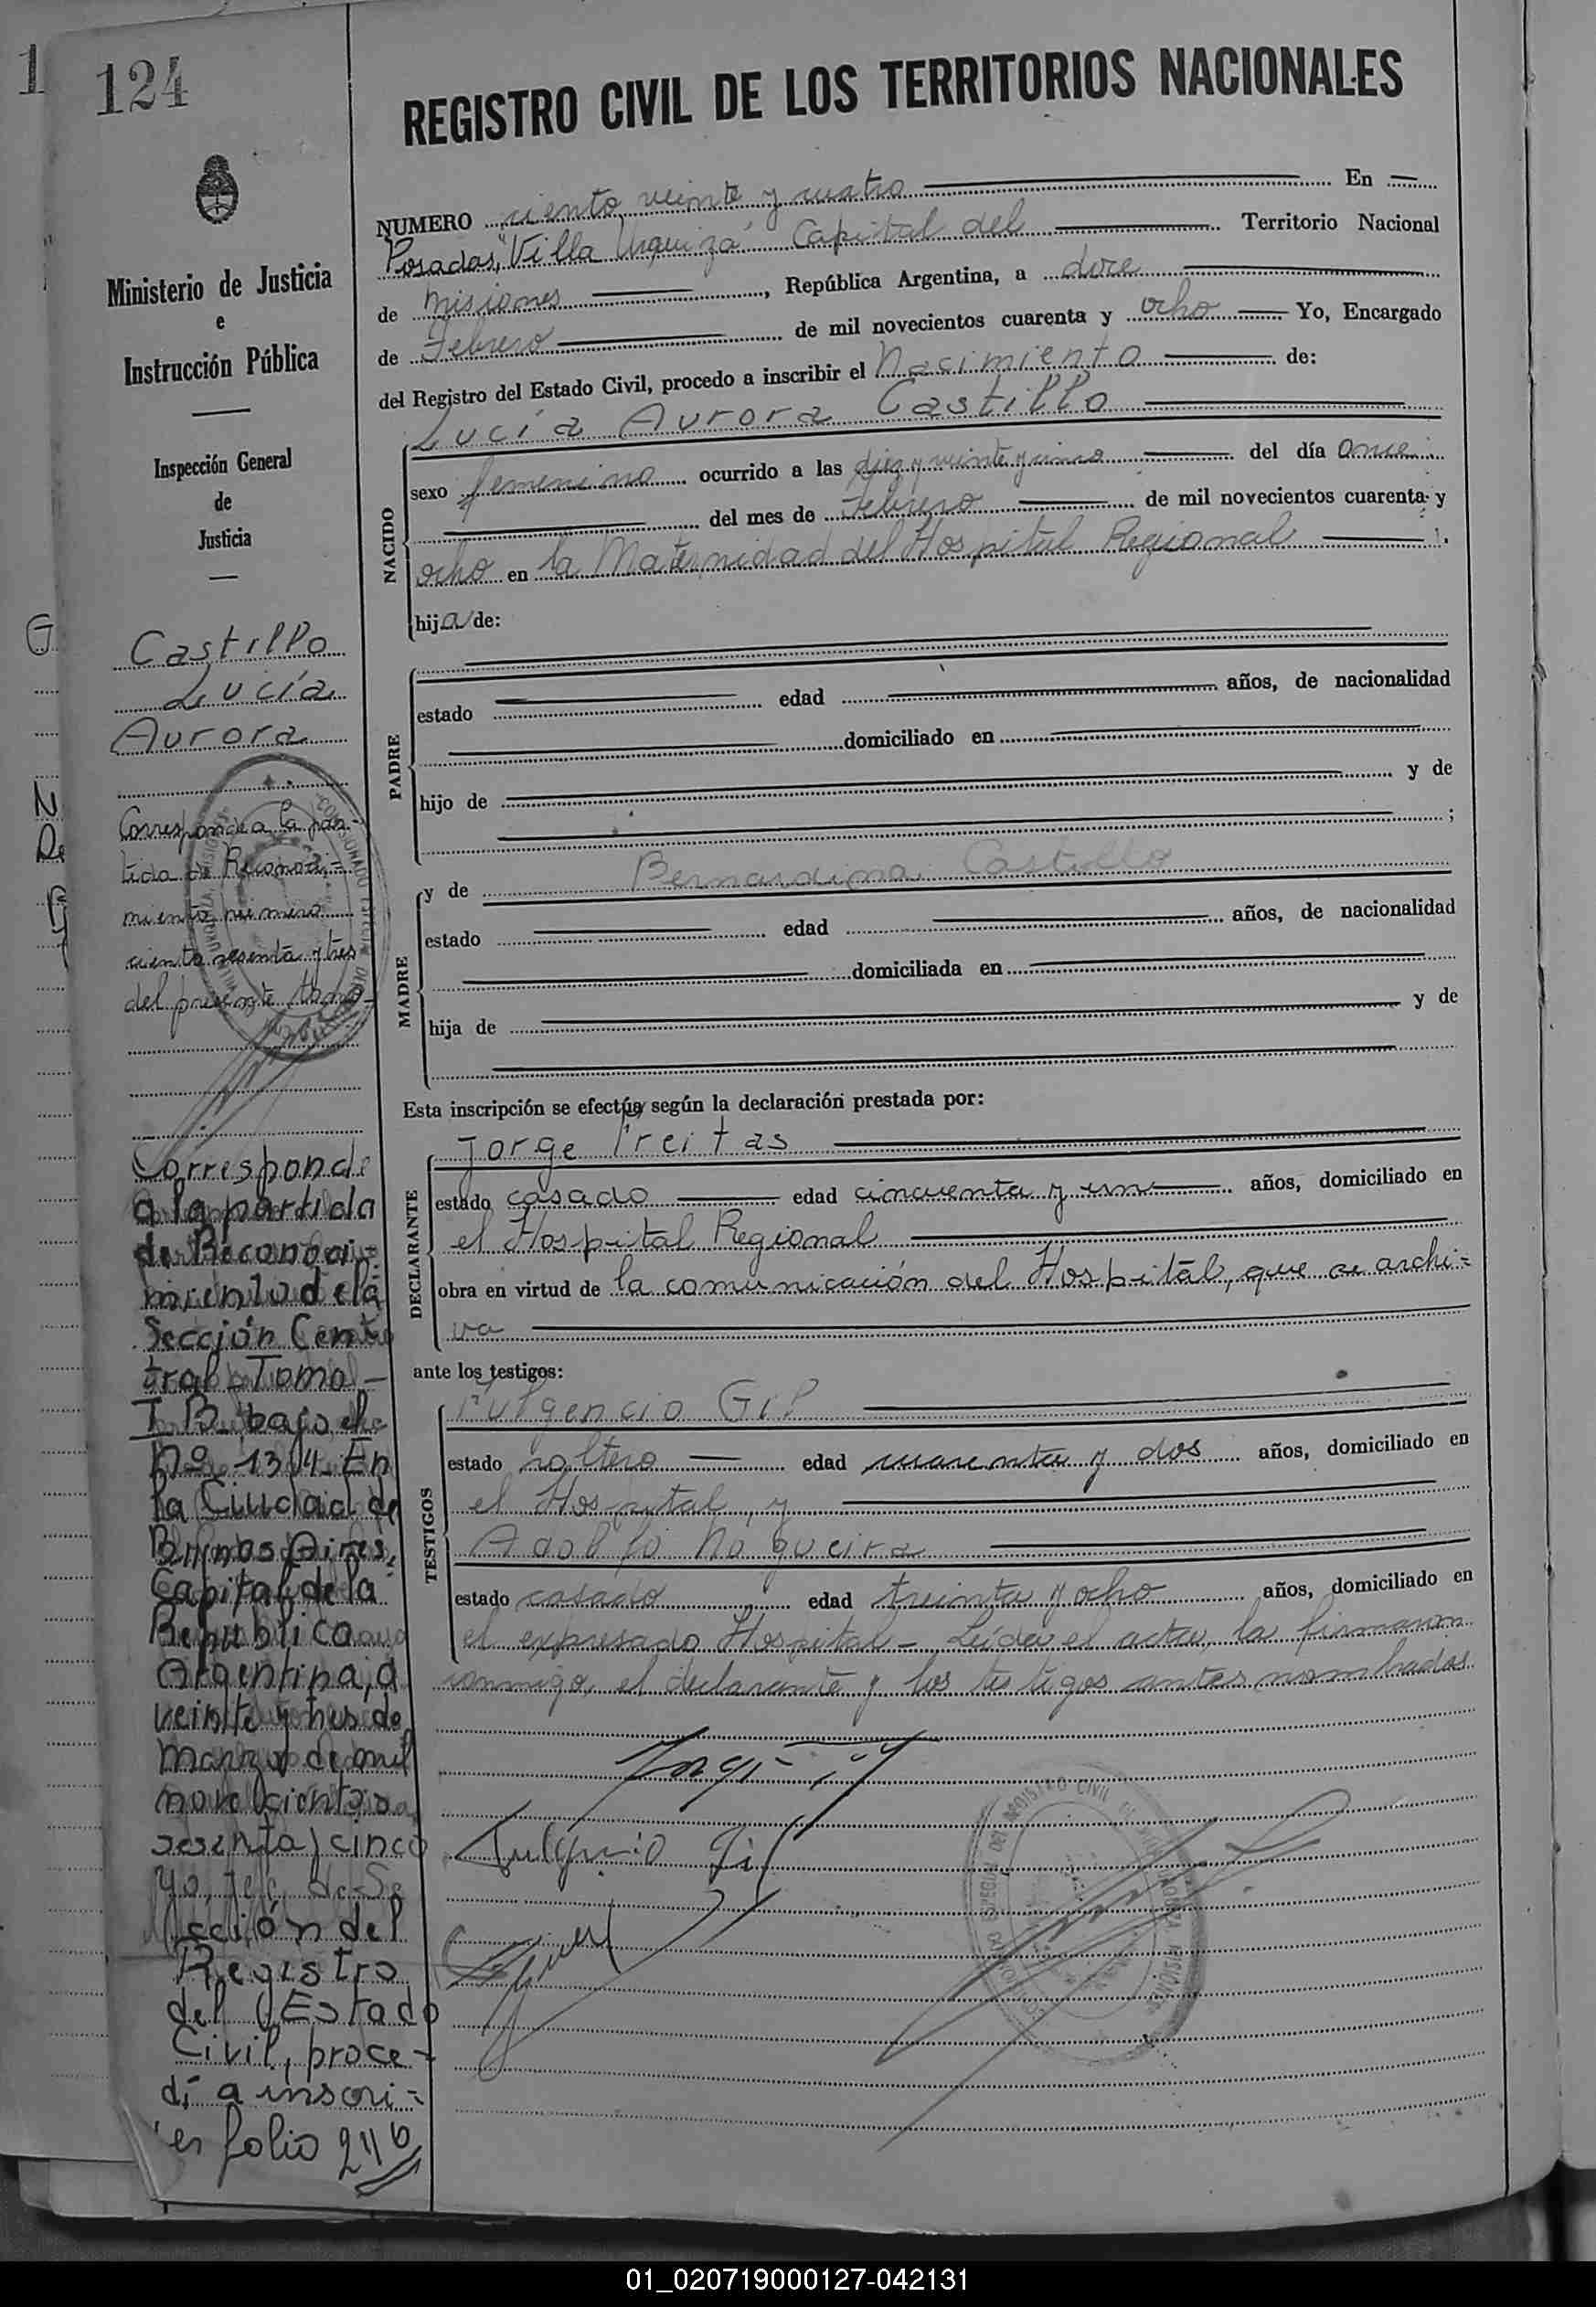 124
Ministerio de Justicia
e
Instrucción Pública
Inspección General
de
Justicia
Castillo
Lucía
Aurora
Corresponde a la par-
tida de Reconoci-
miento número
ciento sesenta y tres
del presente tomo-
Corresponde
a la partida
de Reconoci=
miento de la
Sección Cen
tral Tomo-
I B bajo el
No 1304. En
la Ciudad de
Buenos Aires,
Capital de la
Republica
Argentina, a
veinte y tres de
marzo de mil
novecientos
sesenta y cinco
Yo, Jefe de Se
cción del
Registro
del Estado
Civil, proce-
dí a inscri=
en folio 246
REGISTRO CIVIL DE LOS TERRITORIOS NACIONALES
NUMERO ciento veinte y cuatro En
Posadas, "Villa Urquiza" Capital del Territorio Nacional
de Misiones, República Argentina, a doce
de Febrero de mil novecientos cuarenta y ocho Yo, Encargado
del Registro del Estado Civil, procedo a inscribir el Nacimiento de:
Lucía Aurora Castillo
NACIDO
sexo femenino ocurrido a las diez y veinte y cinco del día once
del mes de Febrero de mil novecientos cuarenta y
ocho en la Maternidad del Hospital Regional
hija de:
PADRE
estado edad años, de nacionalidad
domiciliado en
hijo de y de
;
MADRE
y de Bernardina Castillo
estado edad años, de nacionalidad
domiciliada en
hija de y de
Esta inscripción se efectúa según la declaración prestada por:
DECLARANTE
Jorge Freitas
estado casado edad cincuenta y un años, domiciliado en
el Hospital Regional
obra en virtud de la comunicación del Hospital, que se archi=
va
ante los testigos:
TESTIGOS
Fulgencio Gil
estado soltero edad cuarenta y dos años, domiciliado en
el Hospital y
Adolfo Nogueira
estado casado edad treinta y ocho años, domiciliado en
el expresado Hospital - Leída el acta, la firmaron
conmigo, el declarante y los testigos antes nombrados
Fulgencio Gil
01_020719000127-042131